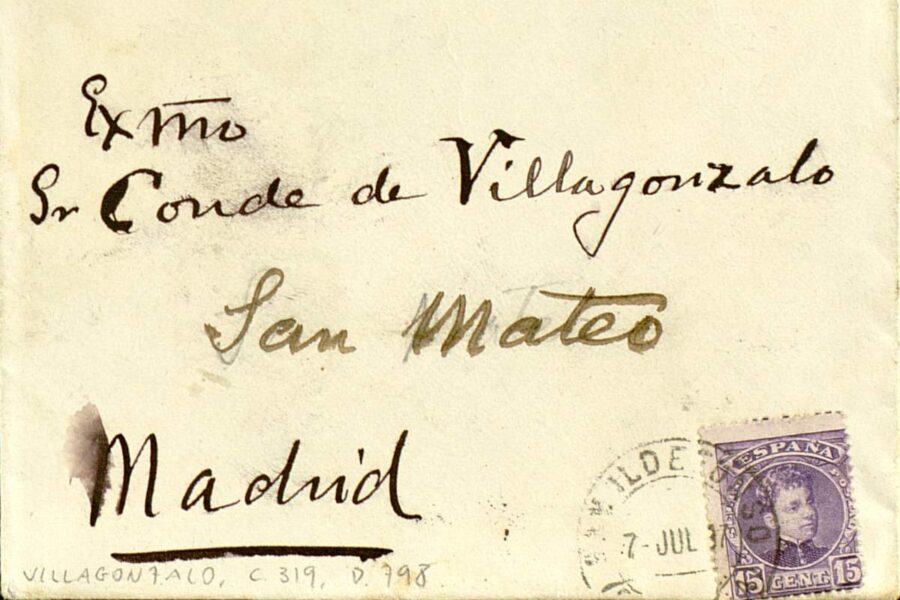 Exmo
Sr Conde de Villagonzalo
San Mateo
Madrid
ILDE
7-JUL
ESPAÑA
15 CENT 15
VILLAGONZALO, C. 319, D. 798